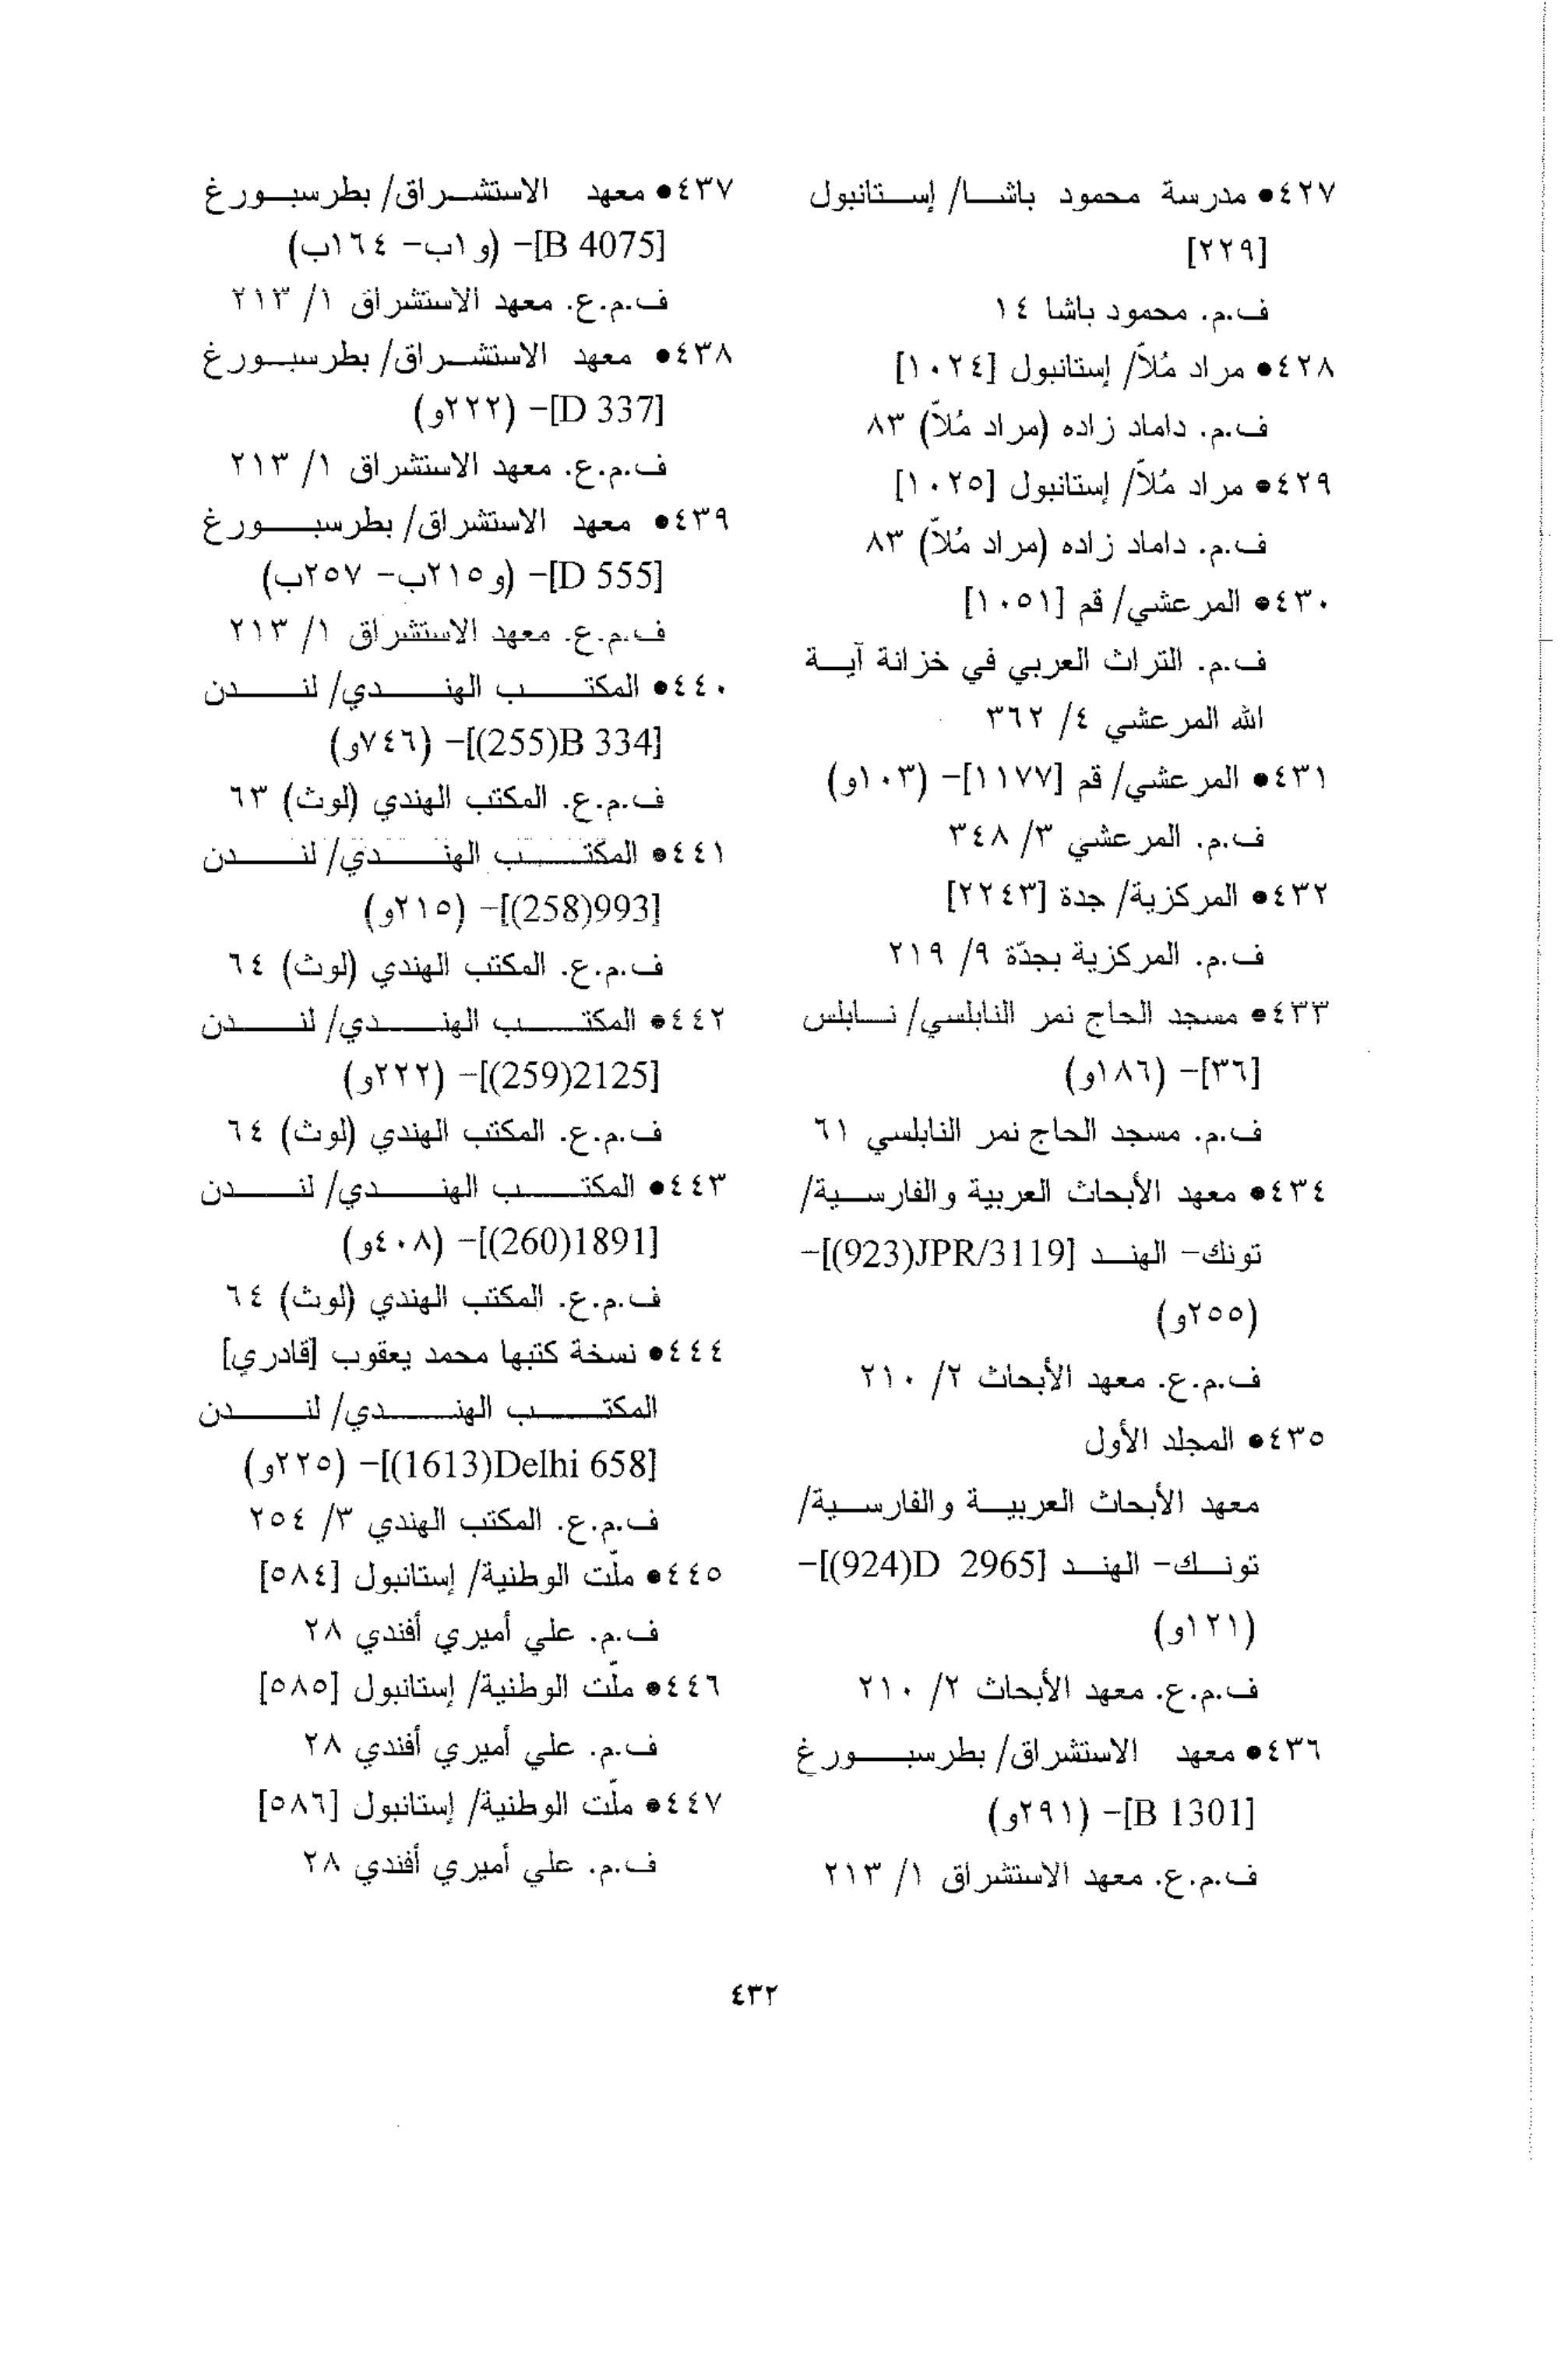 ٤٢٧● مدرسة محمود باشا/ إستانبول
[٢٢٩]
ف.م. محمود باشا ١٤
٤٢٨● مراد مُلاّ/ إستانبول [١٠٢٤]
ف.م. داماد زاده (مراد مُلاّ) ٨٣
٤٢٩● مراد مُلاّ/ إستانبول [١٠٢٥]
ف.م. داماد زاده (مراد مُلاّ) ٨٣
٤٣٠● المرعشي/ قم [١٠٥١]
ف.م. التراث العربي في خزانة آية
الله المرعشي ٤/ ٣٦٢
٤٣١● المرعشي/ قم [١١٧٧]- (١٠٣و)
ف.م. المرعشي ٣/ ٣٤٨
٤٣٢● المركزية/ جدة [٢٢٤٣]
ف.م. المركزية بجدّة ٩/ ٢١٩
٤٣٣● مسجد الحاج نمر النابلسي/ نابلس
[٣٦]- (١٨٦و)
ف.م. مسجد الحاج نمر النابلسي ٦١
٤٣٤● معهد الأبحاث العربية والفارسية/
تونك- الهند [JPR/3119(923)]-
(٢٥٥و)
ف.م.ع. معهد الأبحاث ٢/ ٢١٠
٤٣٥● المجلد الأول
معهد الأبحاث العربية والفارسية/
تونك- الهند [D 2965(924)]-
(١٢١و)
ف.م.ع. معهد الأبحاث ٢/ ٢١٠
٤٣٦● معهد الاستشراق/ بطرسبورغ
[B 1301]- (٢٩١و)
ف.م.ع. معهد الاستشراق ١/ ٢١٣
٤٣٧● معهد الاستشراق/ بطرسبورغ
[B 4075]- (و١ب- ١٦٤ب)
ف.م.ع. معهد الاستشراق ١/ ٢١٣
٤٣٨● معهد الاستشراق/ بطرسبورغ
[D 337]- (٢٢٢و)
ف.م.ع. معهد الاستشراق ١/ ٢١٣
٤٣٩● معهد الاستشراق/ بطرسبورغ
[D 555]- (و٢١٥ب- ٢٥٧ب)
ف.م.ع. معهد الاستشراق ١/ ٢١٣
٤٤٠● المكتب الهندي/ لندن
[B 334(255)]- (٧٤٦و)
ف.م.ع. المكتب الهندي (لوث) ٦٣
٤٤١● المكتب الهندي/ لندن
[993(258)]- (٢١٥و)
ف.م.ع. المكتب الهندي (لوث) ٦٤
٤٤٢● المكتب الهندي/ لندن
[2125(259)]- (٢٢٢و)
ف.م.ع. المكتب الهندي (لوث) ٦٤
٤٤٣● المكتب الهندي/ لندن
[1891(260)]- (٤٠٨و)
ف.م.ع. المكتب الهندي (لوث) ٦٤
٤٤٤● نسخة كتبها محمد يعقوب [قادري]
المكتب الهندي/ لندن
[Delhi 658(1613)]- (٢٢٥و)
ف.م.ع. المكتب الهندي ٣/ ٢٥٤
٤٤٥● ملّت الوطنية/ إستانبول [٥٨٤]
ف.م. علي أميري أفندي ٢٨
٤٤٦● ملّت الوطنية/ إستانبول [٥٨٥]
ف.م. علي أميري أفندي ٢٨
٤٤٧● ملّت الوطنية/ إستانبول [٥٨٦]
ف.م. علي أميري أفندي ٢٨
٤٣٢